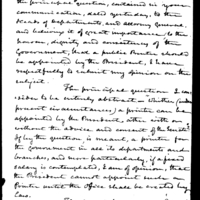 the principal question, contained in your
communication, dated yesterday, to the
Heads of Departments, and Attorney General,
and believing it of great importance to the
person, dignity, and consistency of the
Government, that a public Printer should
be appointed by the President, I have
respectfully to submit my opinion on the
subject.
The principal question I con-
sider to be entirely abstract — Whether (under
present circumstances) a printer can be
appointed by the President, either with or
without the advice and consent of the Senate
by this question is meant, a printer for
the Government in all its departments and
branches, and more particularly, if a fixed
salary is contemplated, I am of opinion, that
the President cannot appoint such a
Printer until the office shall be created by
Law.